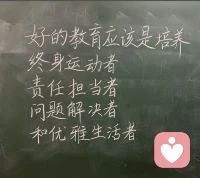 好的教育应该是培养
终身运动者
责任担当者
问题解决者
和优雅生活者